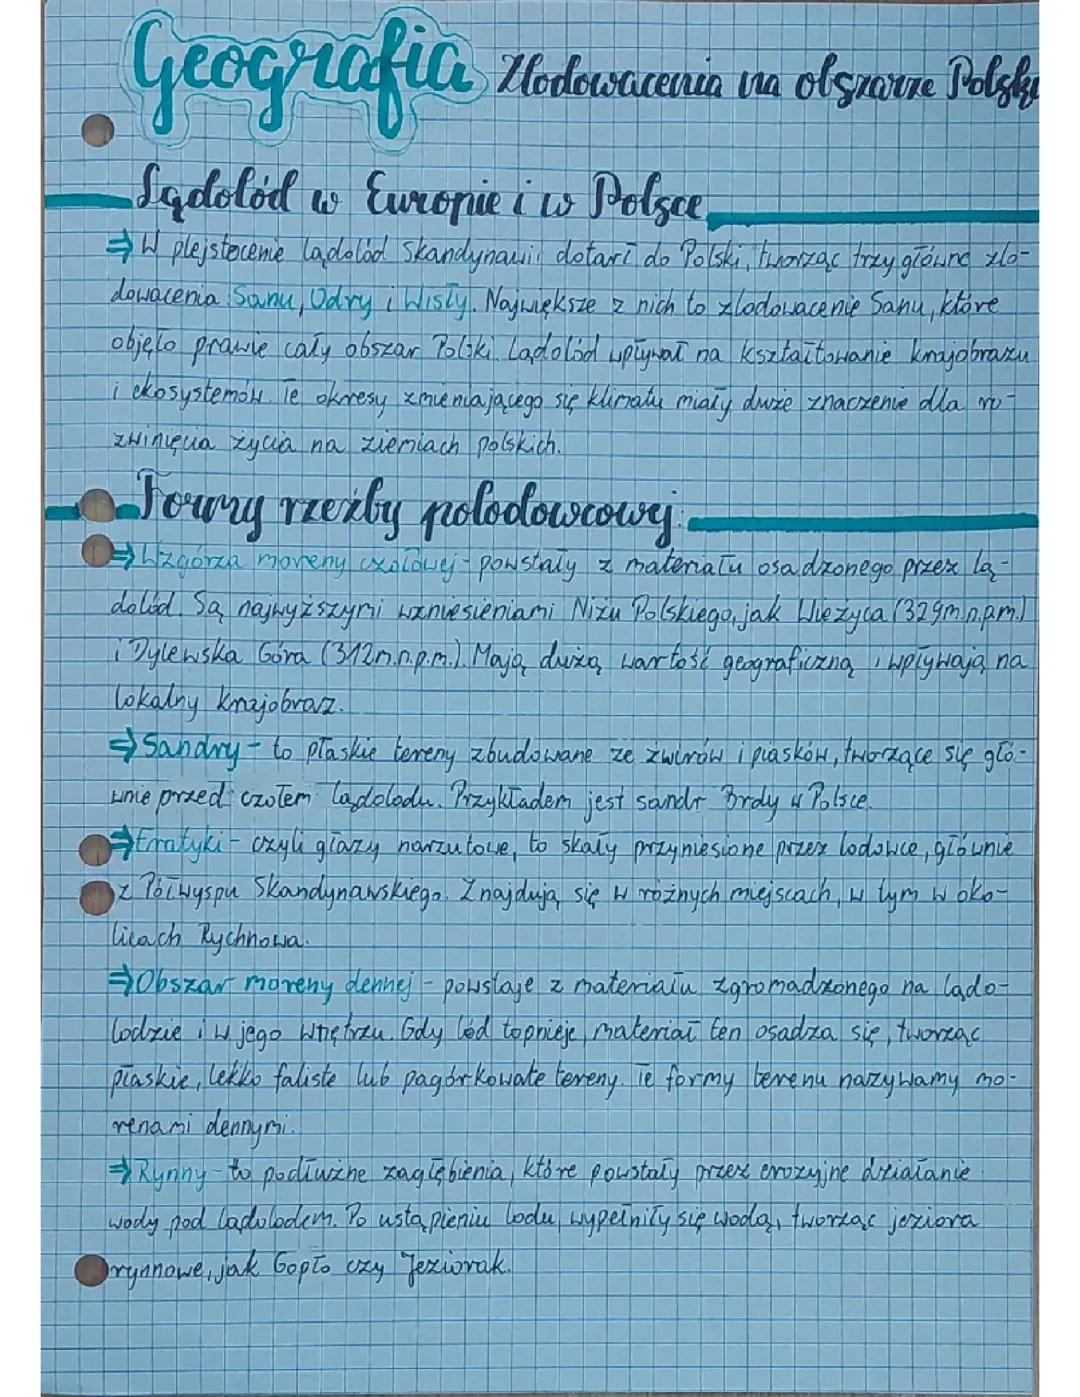 Geografia Zlodowacenia na obszarze Polski
Lądolód w Europie i w Polsce
⇒ W plejstocenie lądolód Skandynawii dotarł do Polski, tworząc trzy główne zlo-
dowacenia: Sanu, Odry i Wisły. Największe z nich to zlodowacenie Sanu, które
objęło prawie cały obszar Polski. Lądolód wpływał na kształtowanie krajobrazu
i ekosystemów. Te okresy zmieniającego się klimatu miały duże znaczenie dla ro-
zwinięcia życia na ziemiach polskich.
Formy rzeźby polodowcowej:
⇒ Wzgórza moreny czołowej - powstały z materiału osadzonego przez lą-
dolód. Są najwyższymi wzniesieniami Niżu Polskiego, jak Wieżyca (329m.n.p.m.)
i Dylewska Góra (312m.n.p.m.). Mają dużą wartość geograficzną i wpływają na
lokalny krajobraz.
⇒ Sandry - to płaskie tereny zbudowane ze żwirów i piasków, tworzące się głó-
wnie przed czołem lądolodu. Przykładem jest sandr Brdy w Polsce.
⇒ Eratyki - czyli głazy narzutowe, to skały przyniesione przez lodowce, głównie
z Półwyspu Skandynawskiego. Znajdują się w różnych miejscach, w tym w oko-
licach Rychnowa.
⇒ Obszar moreny dennej - powstaje z materiału zgromadzonego na lądo-
lodzie i w jego wnętrzu. Gdy lód topnieje, materiał ten osadza się, tworząc
płaskie, lekko faliste lub pagórkowate tereny. Te formy terenu nazywamy mo-
renami dennymi.
⇒ Rynny - to podłużne zagłębienia, które powstały przez erozyjne działanie
wody pod lądolodem. Po ustąpieniu lodu, wypełniły się wodą, tworząc jeziora
rynnowe, jak Gopło czy Jeziorak.